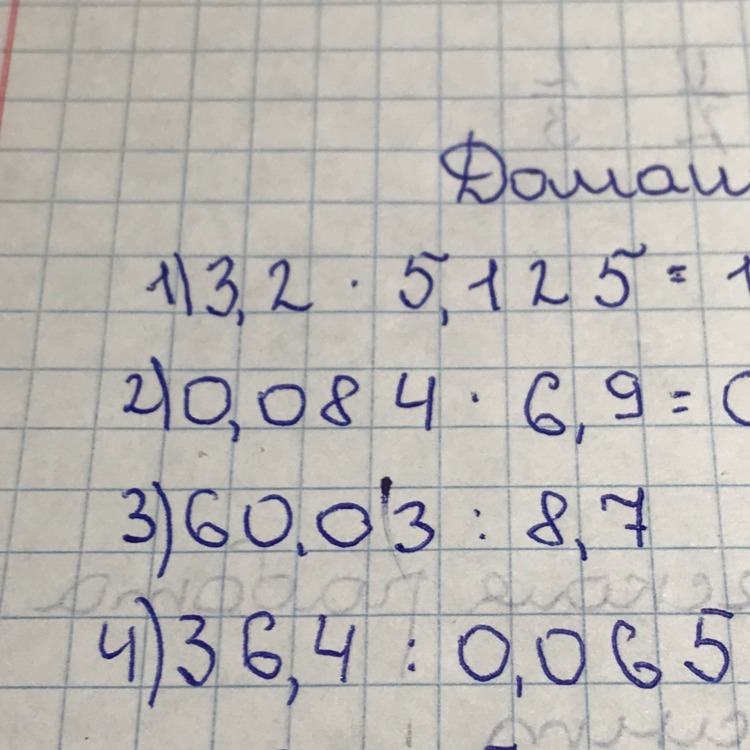 Домаш
1) 3,2 · 5,125 = 1
2) 0,084 · 6,9 = 0
3) 60,03 : 8,7
4) 36,4 : 0,065